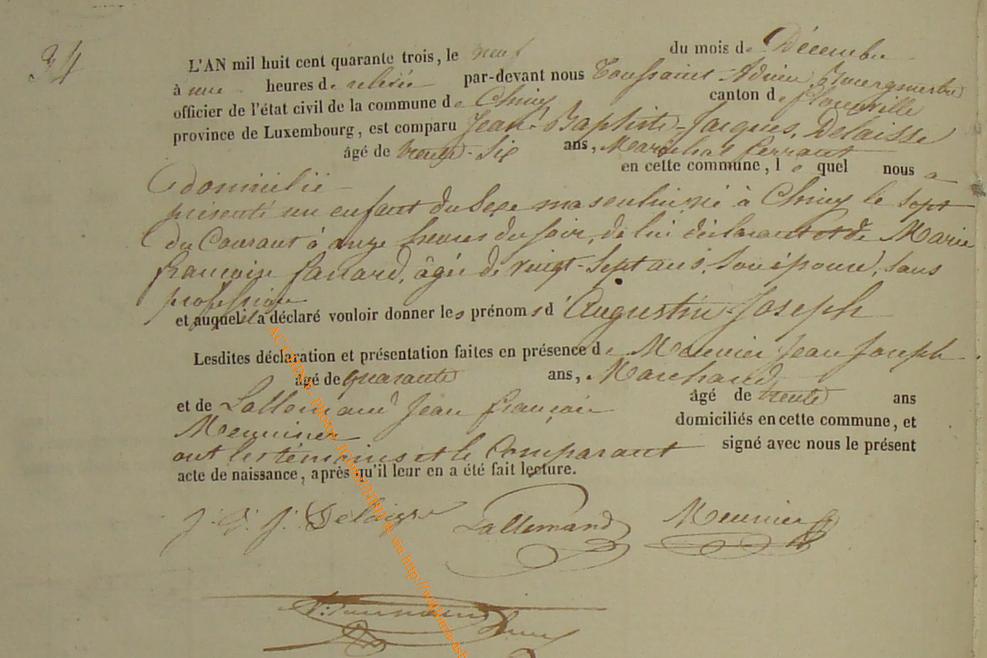 34
L'AN mil huit cent quarante trois, le neuf du mois de Décembre
à une heures de relevée par-devant nous Toussaint Adrien
officier de l'état civil de la commune de Chiny canton de Florenville
province de Luxembourg, est comparu Jean Baptiste-Jacques Delaisse
âgé de trente-Six ans, Maréchal ferrant
domicilié en cette commune, le quel nous a
présenté un enfant du Sexe masculin né à Chiny le Sept
du Courant à onze heures du soir, de lui déclarant et de Marie
françoise, âgée de vingt-Sept ans, Son épouse, sans
profession
et auquel il a déclaré vouloir donner les prénoms d'Augustin-Joseph
Lesdites déclaration et présentation faites en présence de Meunier Jean Joseph
âgé de quarante ans, Marchand
et de Lallemand Jean françois âgé de trente ans
Menuisier domiciliés en cette commune, et
ont les témoins et le Comparant signé avec nous le présent
acte de naissance, après qu'il leur en a été fait lecture.
J. B. J. Delaisse Lallemand Meunier